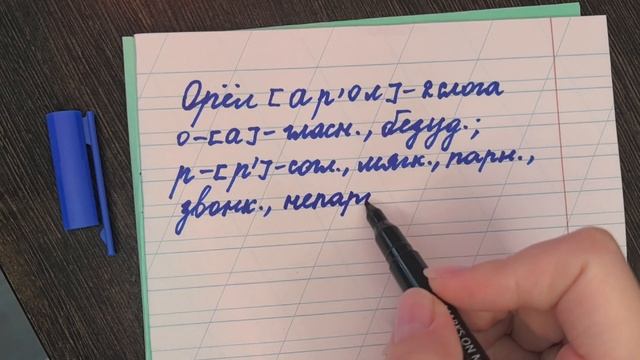 Орёл [ар'ол] - 2 слога
о - [а] - гласн., безуд.;
р - [р'] - согл., мягк., парн.,
звонк., непарн